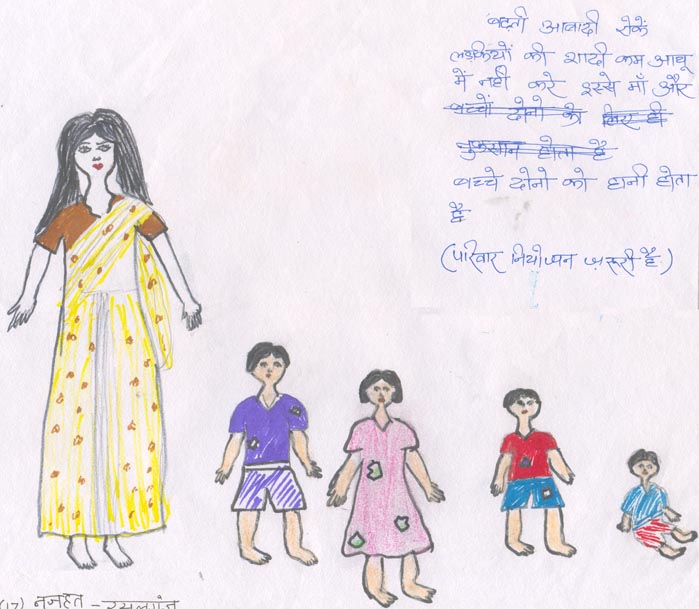 बढ़ती आबादी रोकें
लड़कियों की शादी कम आयू
में नही करे इस्से माँ और
बच्चों दोनो के लिए ही
नुकसान होता है
बच्चे दोनो को हानी होता
है
(परिवार नियोजन ज़रूरी है)
नजहत -